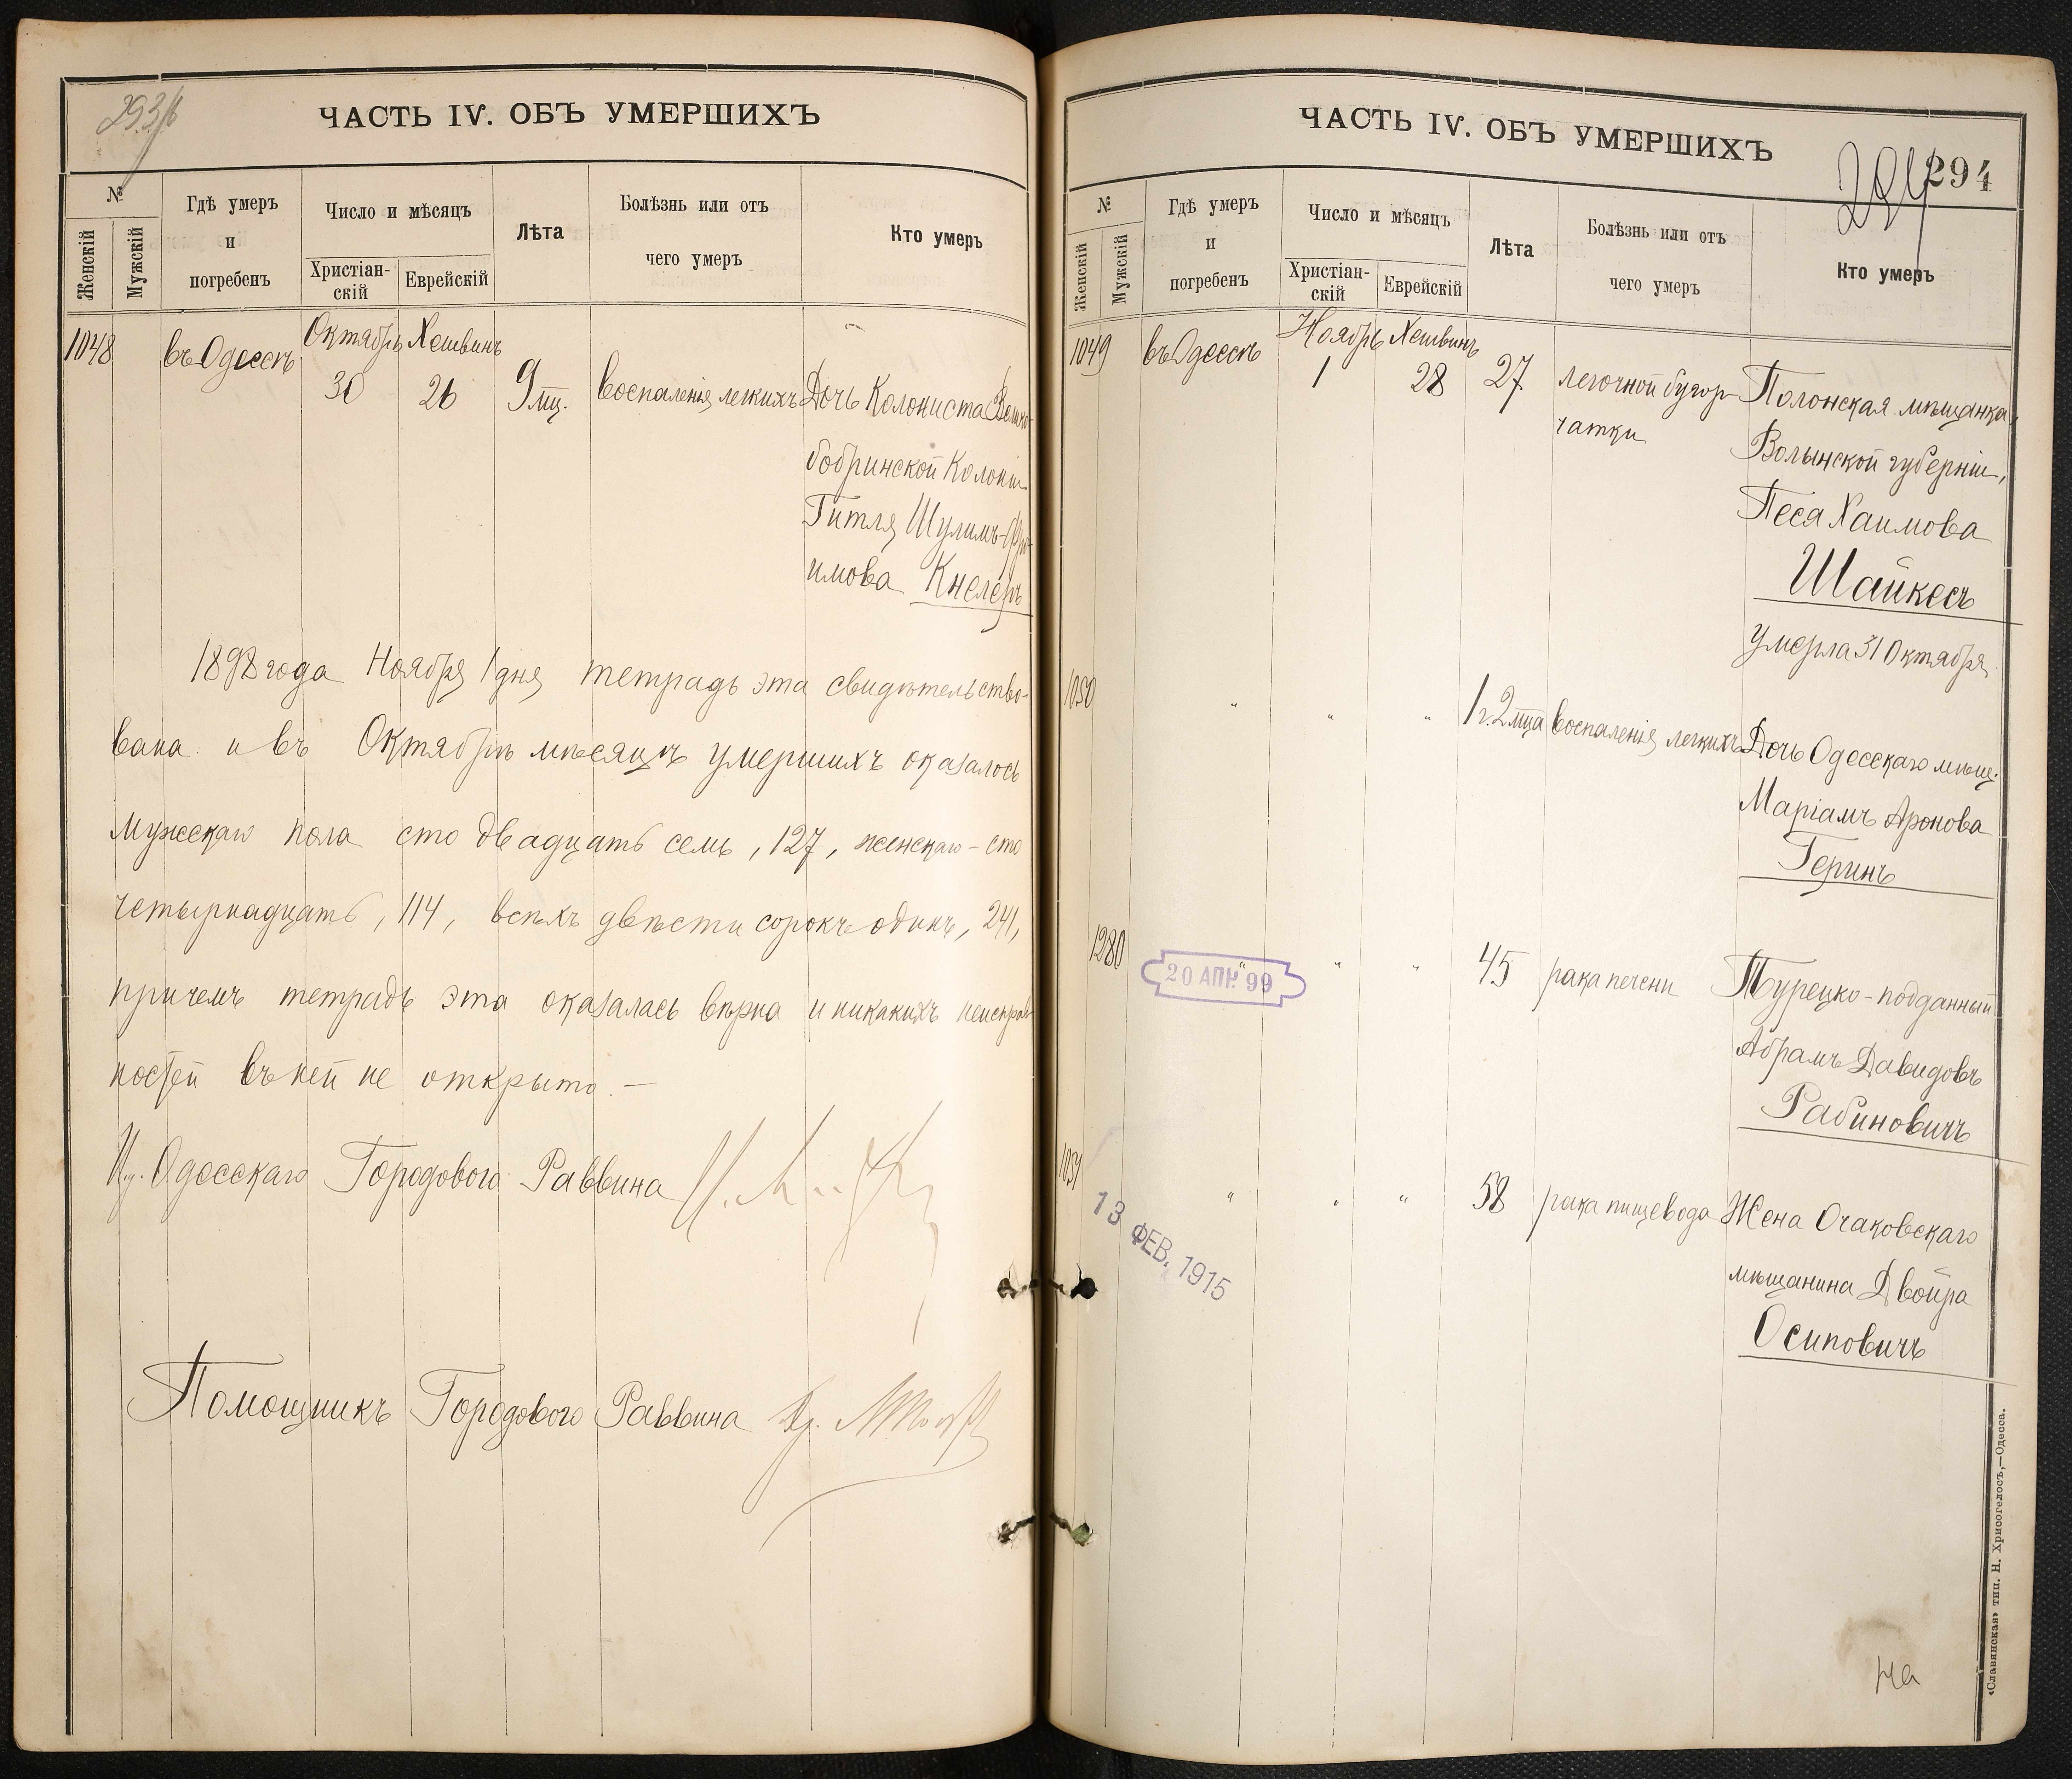 293/б
ЧАСТЬ IV. ОБЪ УМЕРШИХЪ
№
Женскій
Мужскій
Гдѣ умеръ
и
погребенъ
Число и мѣсяцъ
Христіан-
скій
Еврейскій
Лѣта
Болѣзнь или отъ
чего умеръ
Кто умеръ
1048 въ Одессѣ Октябрь Хешвинъ
30 26 9 мц. воспаленія легкихъ Дочь Колониста Велико-
бобринской Колоніи
Гитля Шулимъ-Фро-
имова Кнелеръ
1898 года Ноября 1 дня тетрадь эта свидѣтельство-
вана и въ Октябрѣ мѣсяцѣ умершихъ оказалось
мужскаго пола сто двадцать семь, 127, женскаго - сто
четырнадцать, 114, всѣхъ двѣсти сорокъ одинъ, 241,
причемъ тетрадь эта оказалась вѣрна и никакихъ неисправ-
ностей въ ней не открыто. —
И.д. Одесскаго Городового Раввина
Помощникъ Городового Раввина
ЧАСТЬ IV. ОБЪ УМЕРШИХЪ
294
294
№
Женскій
Мужскій
Гдѣ умеръ
и
погребенъ
Число и мѣсяцъ
Христіан-
скій
Еврейскій
Лѣта
Болѣзнь или отъ
чего умеръ
Кто умеръ
1049 въ Одессѣ Ноябрь Хешвинъ
1 28 27 легочной бугор-
чатки
Полонская мѣщанка,
Волынской губерніи,
Песя Хаимова
Шайкесъ
умерла 31 Октября
1050 " " " 1 г. 2 мца воспаленія легкихъ Дочь Одесскаго мѣщ.
Маріамъ Аронова
Геринъ
1280 " " " 45 рака печени Турецко-подданный
20 АПР. 99
Абрамъ Давидовъ
Рабиновичъ
1051 " " " 58 рака пищевода Жена Очаковскаго
13 ФЕВ. 1915
мѣщанина Двойра
Осиповичъ
На
«Славянская» тип. Н. Хрисогелосъ,—Одесса.